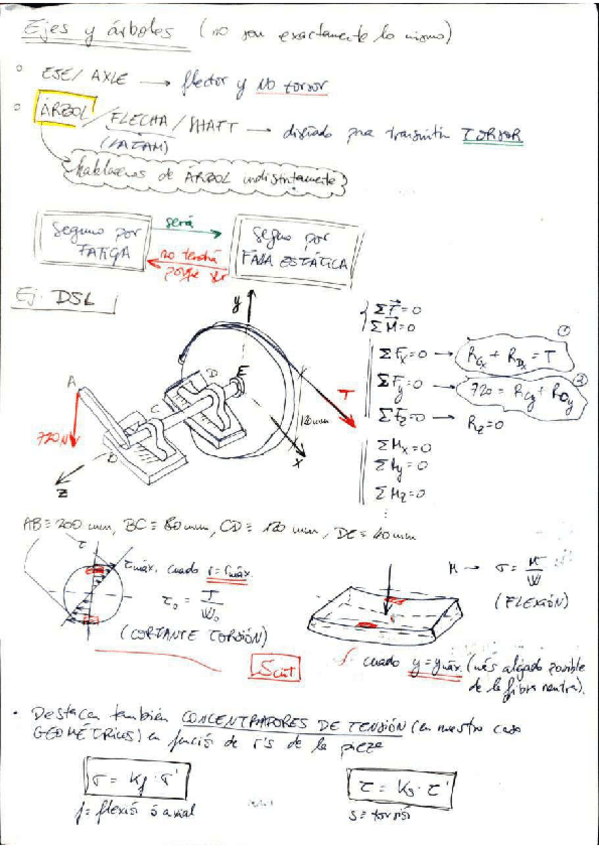 Ejes y árboles (no son exactamente lo mismo)
EJE/ AXLE → flector y NO torsor
ÁRBOL / FLECHA / SHAFT → diseñado para transmitir TORSOR
(LATAM)
hablaremos de ÁRBOL indistintamente
Seguro por FATIGA
será
no tendrá porqué ser
Seguro por FALLA ESTÁTICA
Ej. DSL
y
A
B
C
D
E
T
720 N
120mm
x
z
Σ F = 0
Σ M = 0
Σ Fx = 0 → RCx + RDx = T
1
Σ Fy = 0 → 720 = RCy + RDy
2
Σ Fz = 0 → Rz = 0
Σ Mx = 0
Σ My = 0
Σ Mz = 0
AB = 200 mm, BC = 80 mm, CD = 120 mm, DE = 40 mm
τ
τmáx. cuando r = rmáx.
τo = T/Wo
(CORTANTE TORSIÓN)
M → σ = M/W
(FLEXIÓN)
cuando y = ymáx. (más alejado posible
de la fibra neutra).
Scut
• Destacan también CONCENTRADORES DE TENSIÓN (en nuestro caso
GEOMÉTRICOS) en función de r's de la pieza
σ = Kf · σ'
f = flexión ó axial
τ = Ks · τ'
s = torsión